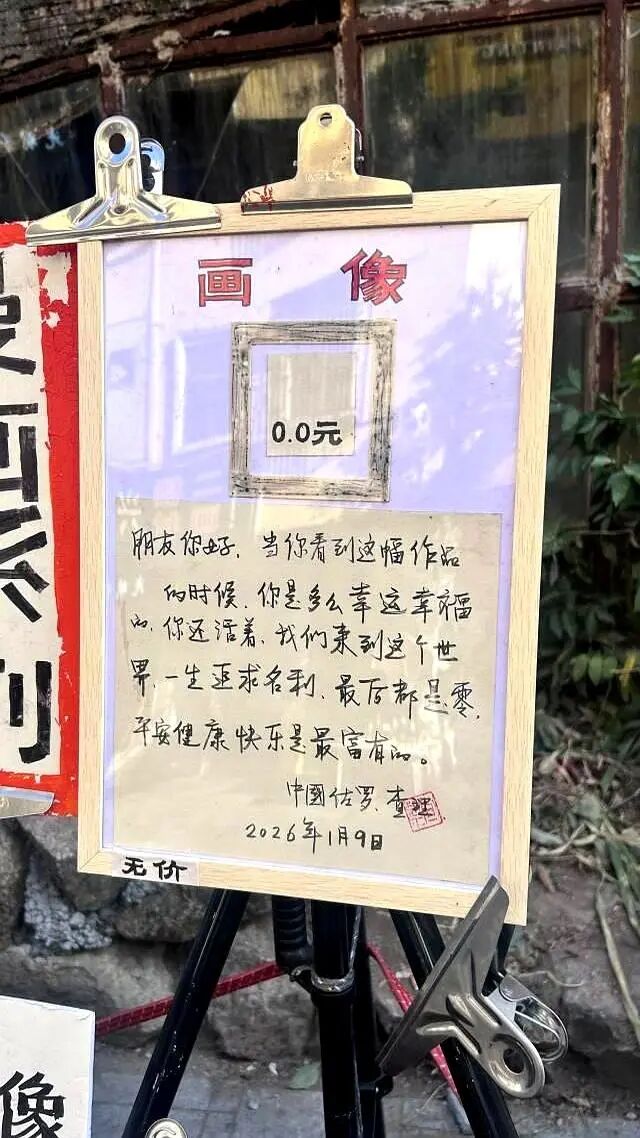 画 像
0.0元
朋友你好，当你看到这幅作品
的时候，你是多么幸这幸福
的，你还活着，我们来到这个世
界，一生追求名利，最后都是零，
平安健康快乐是最富有的。
中國佐罗，查理
2026年1月9日
无价
列
像